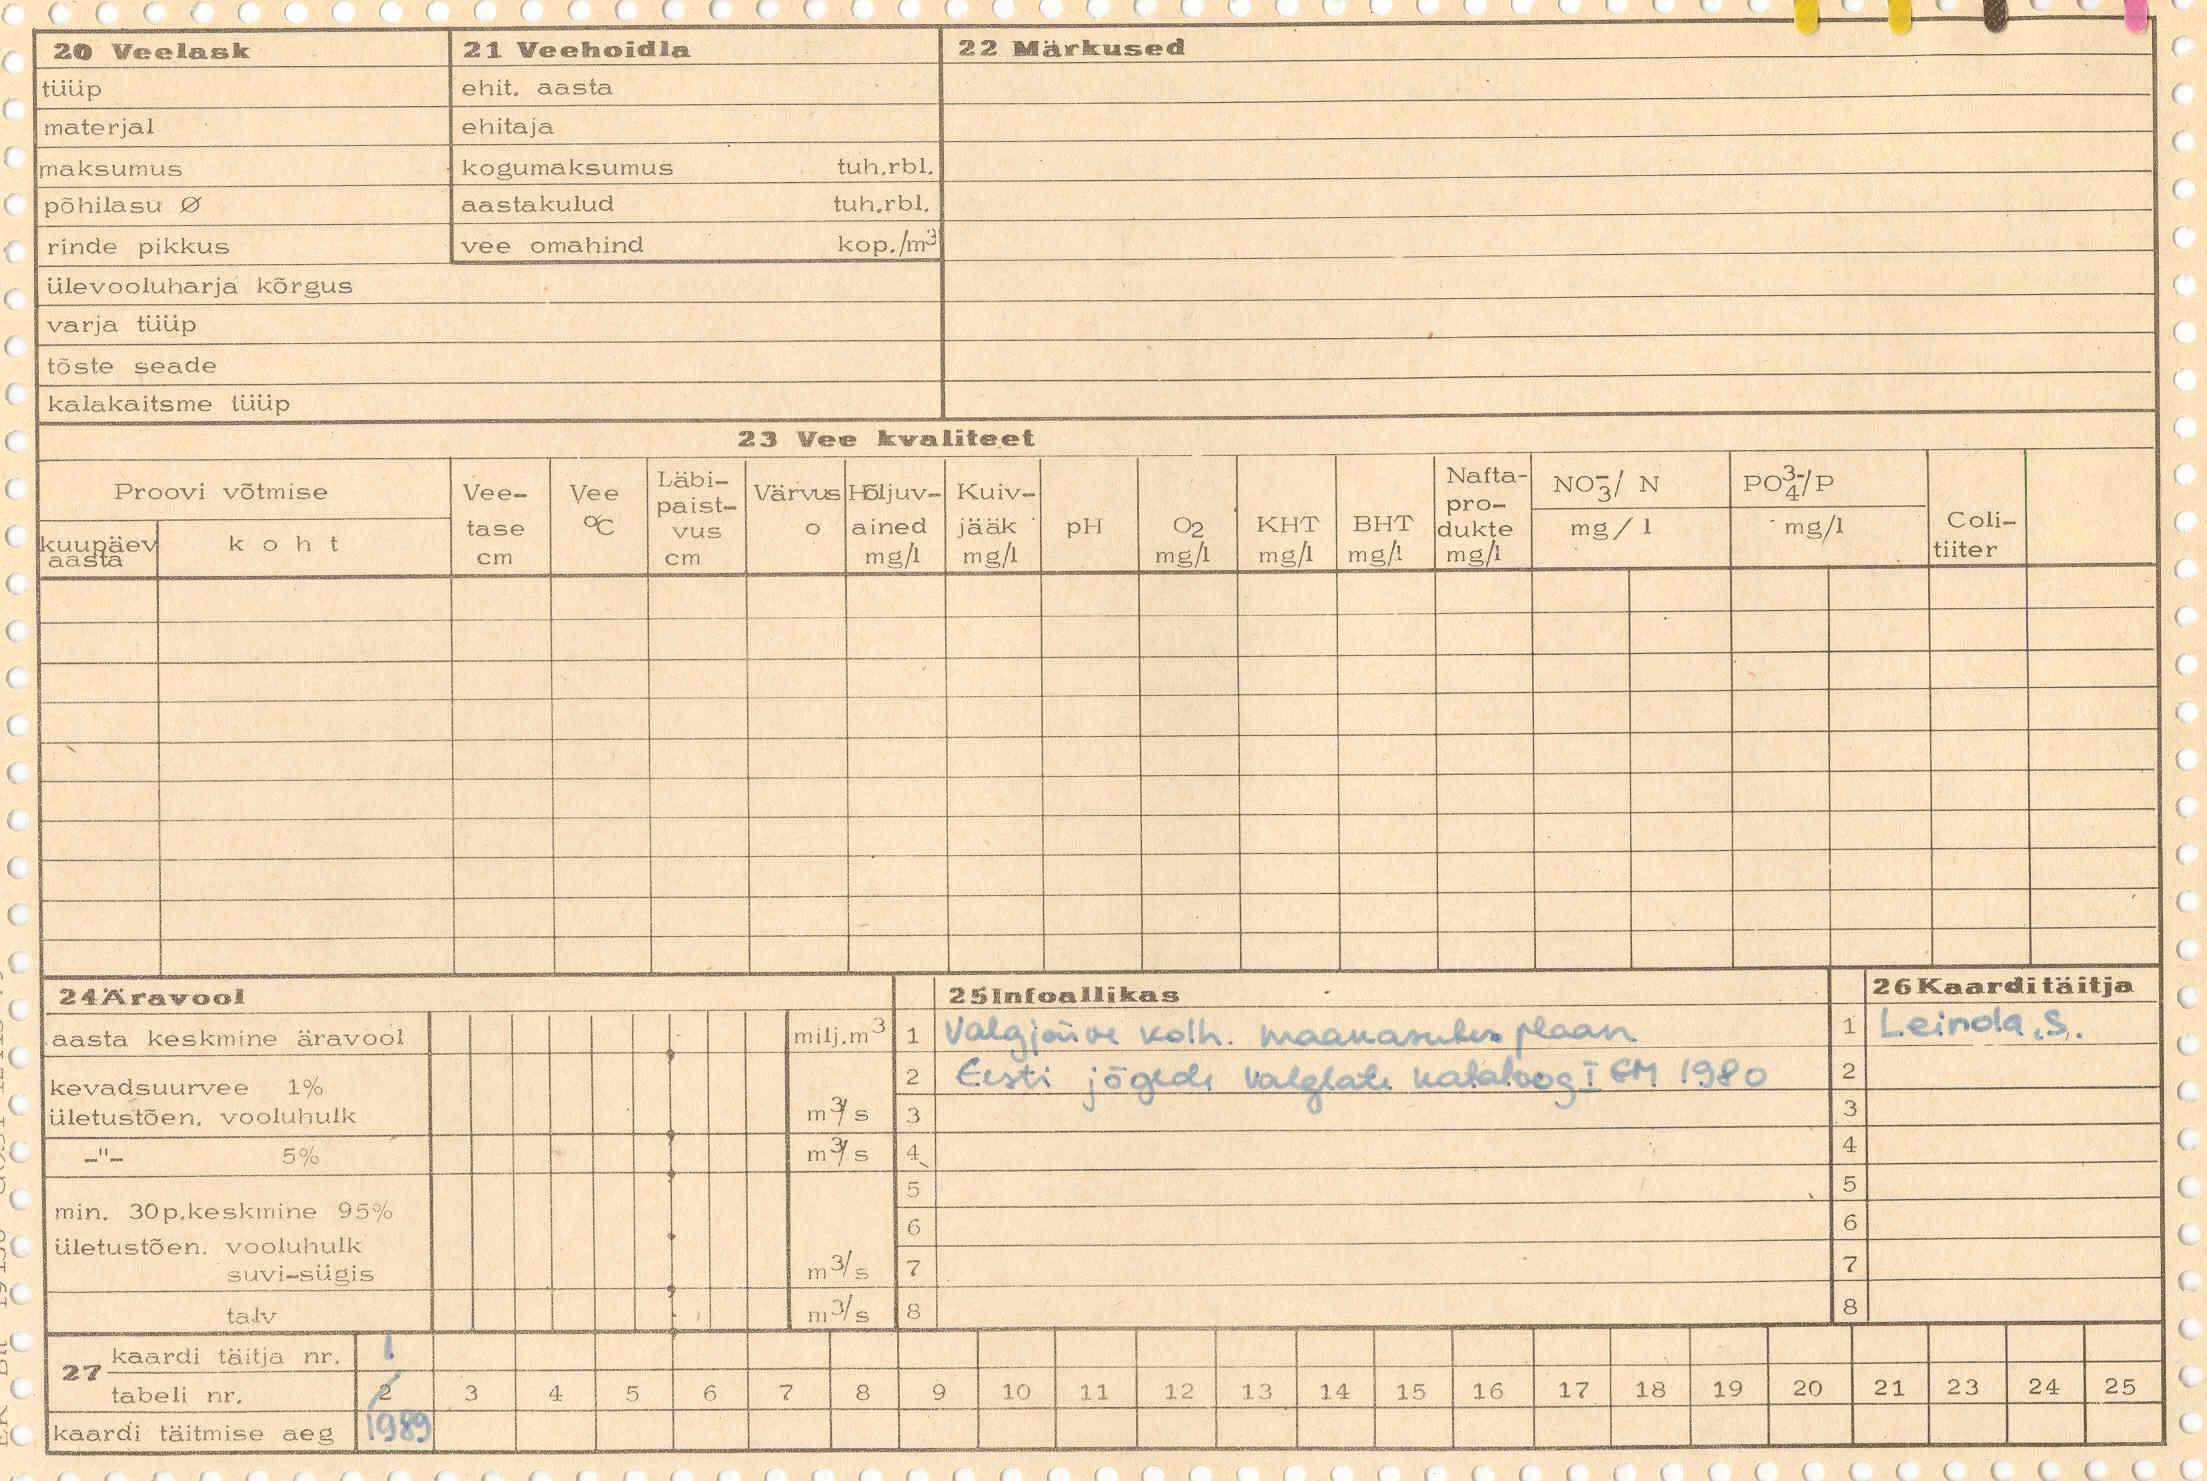 20 Veelask
tüüp
materjal
maksumus
põhilasu Ø
rinde pikkus
ülevooluharja kõrgus
varja tüüp
tõste seade
kalakaitsme tüüp
21 Veehoidla
ehit. aasta
ehitaja
kogumaksumus tuh.rbl.
aastakulud tuh.rbl.
vee omahind kop./m³
22 Märkused
23 Vee kvaliteet
Proovi võtmise
kuupäev
aasta
koht
Vee-
tase
cm
Vee
°C
Läbi-
paist-
vus
cm
Värvus
o
Hõljuv-
ained
mg/l
Kuiv-
jääk
mg/l
pH
O2
mg/l
KHT
mg/l
BHT
mg/l
Nafta-
pro-
dukte
mg/l
NO₃⁻/ N
mg/l
PO₄³⁻/P
mg/l
Coli-
tiiter
24 Äravool
aasta keskmine äravool milj.m³
kevadsuurvee 1%
ületustõen. vooluhulk m³/s
-"- 5% m³/s
min. 30p.keskmine 95%
ületustõen. vooluhulk
suvi-sügis m³/s
talv m³/s
25 Infoallikas
1 Valgjärve kolh. maakasutus plaan
2 Eesti jõgede valglate kataloog I EM 1980
3
4
5
6
7
8
26 Kaarditäitja
1 Leinola, S.
2
3
4
5
6
7
8
27
kaardi täitja nr. 1
tabeli nr. 2 3 4 5 6 7 8 9 10 11 12 13 14 15 16 17 18 19 20 21 23 24 25
kaardi täitmise aeg 1989